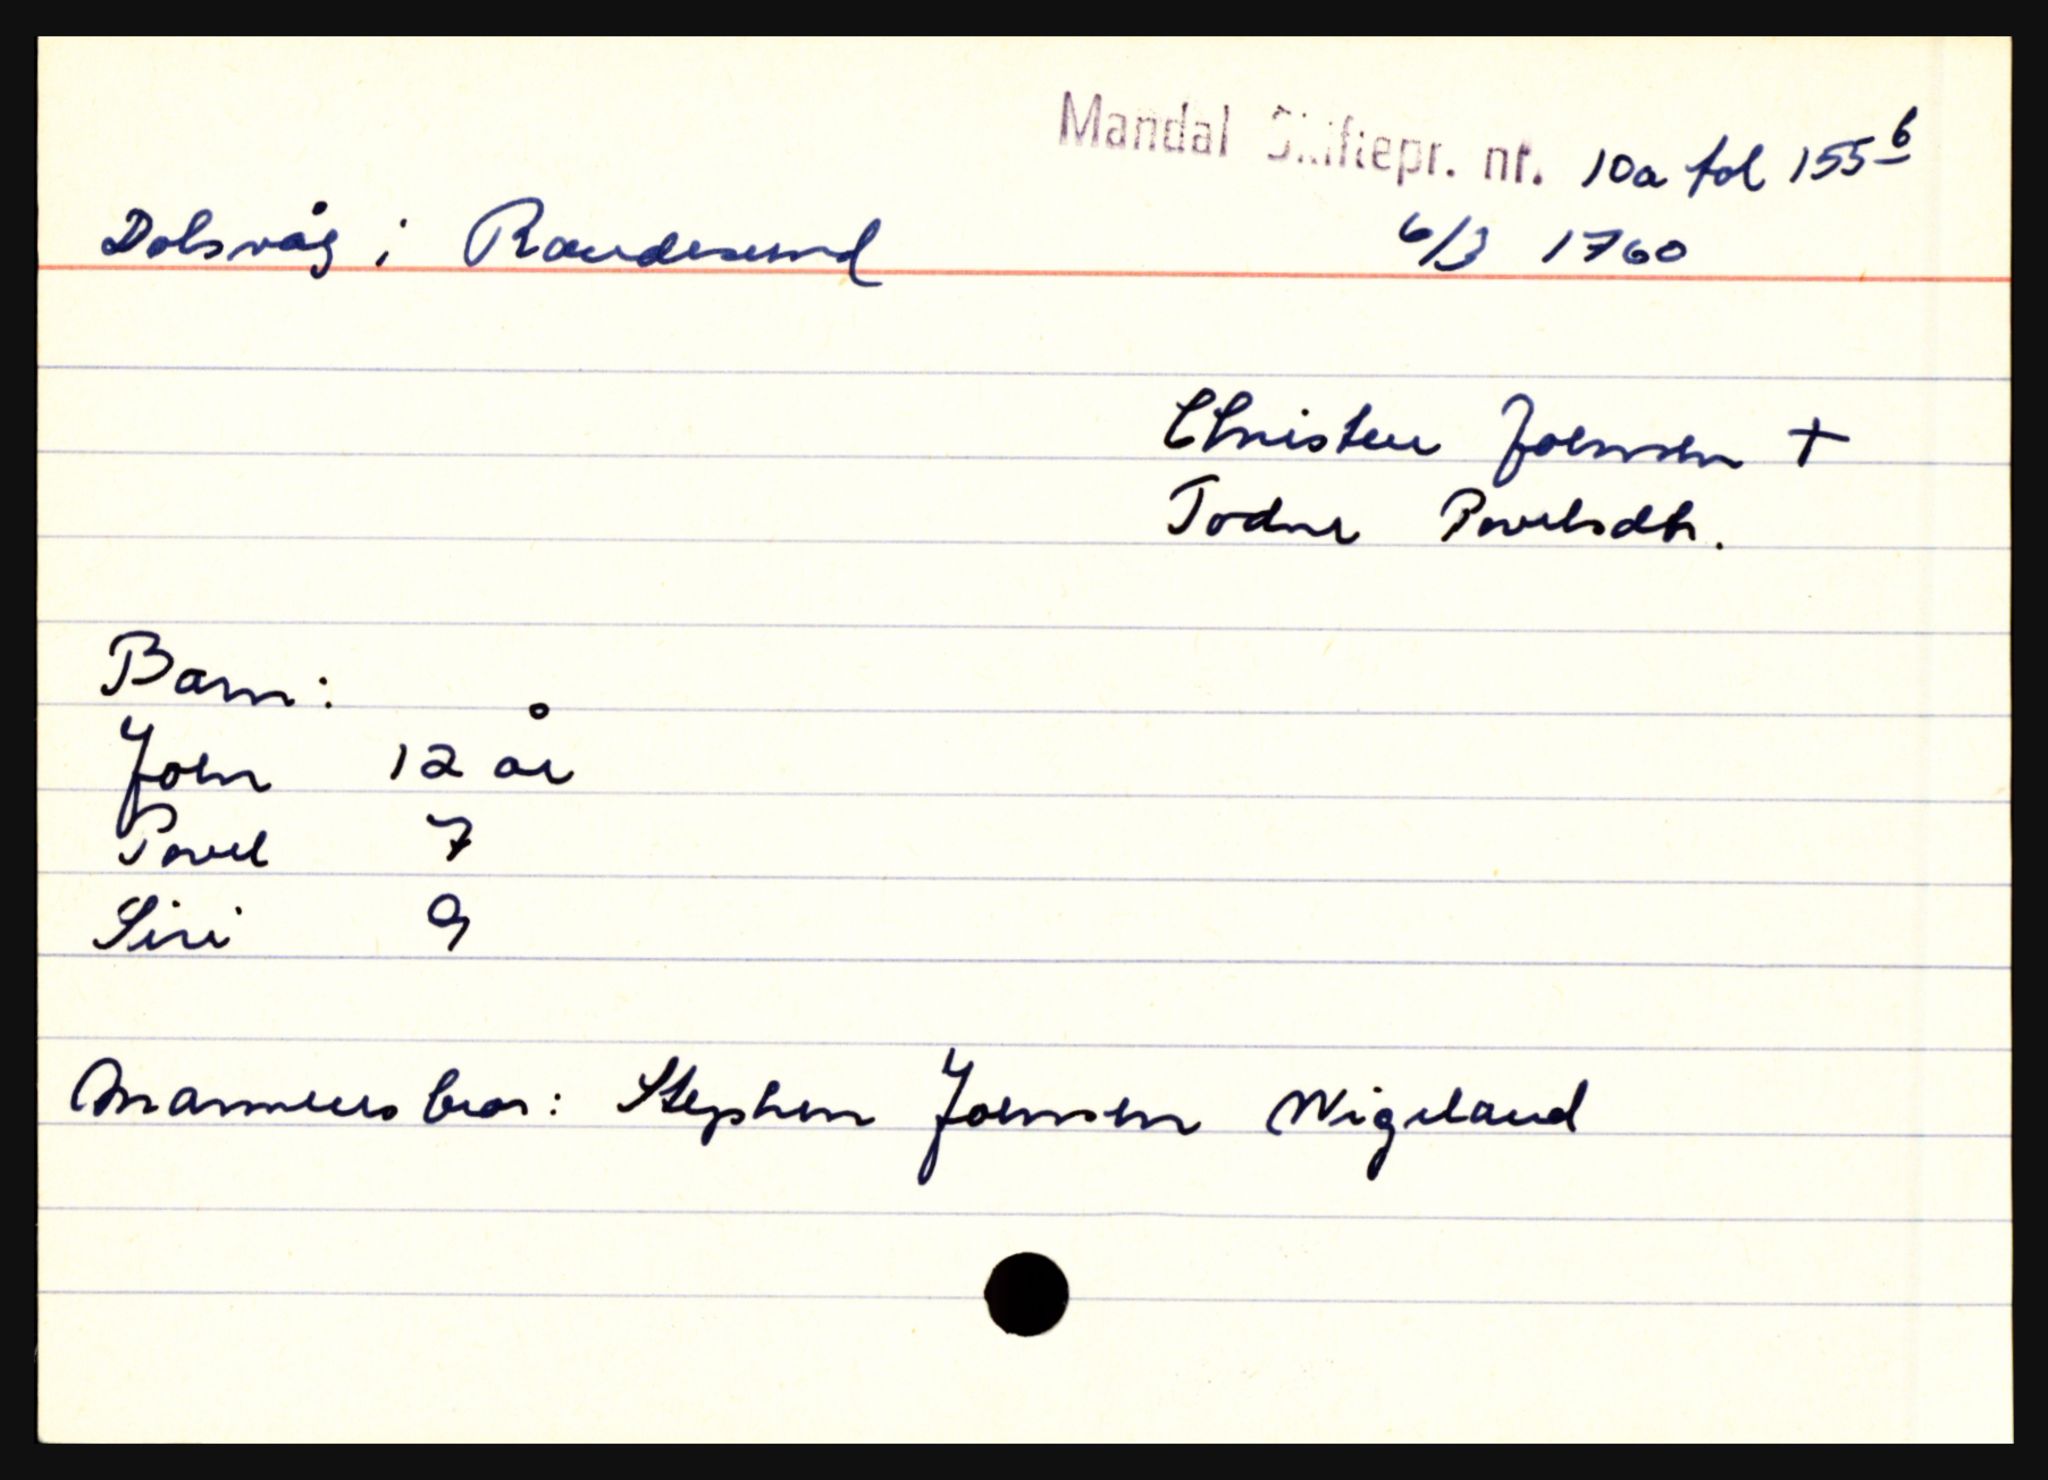 Mandal Skiftepr. nr. 10a fol 155 b
Dolsvåg i Randesund 6/3 1760
Christen Joensen +
Todne Povelsdtr.
Barn:
Joen 12 år
Povel 7
Siri 9
Mannens bror: Stephen Joensen Wigeland